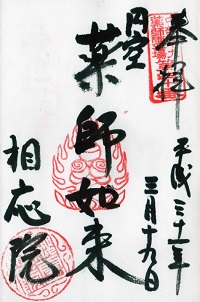 奉拝
平成三十一年
三月十九日
円空
薬師如来
相応院